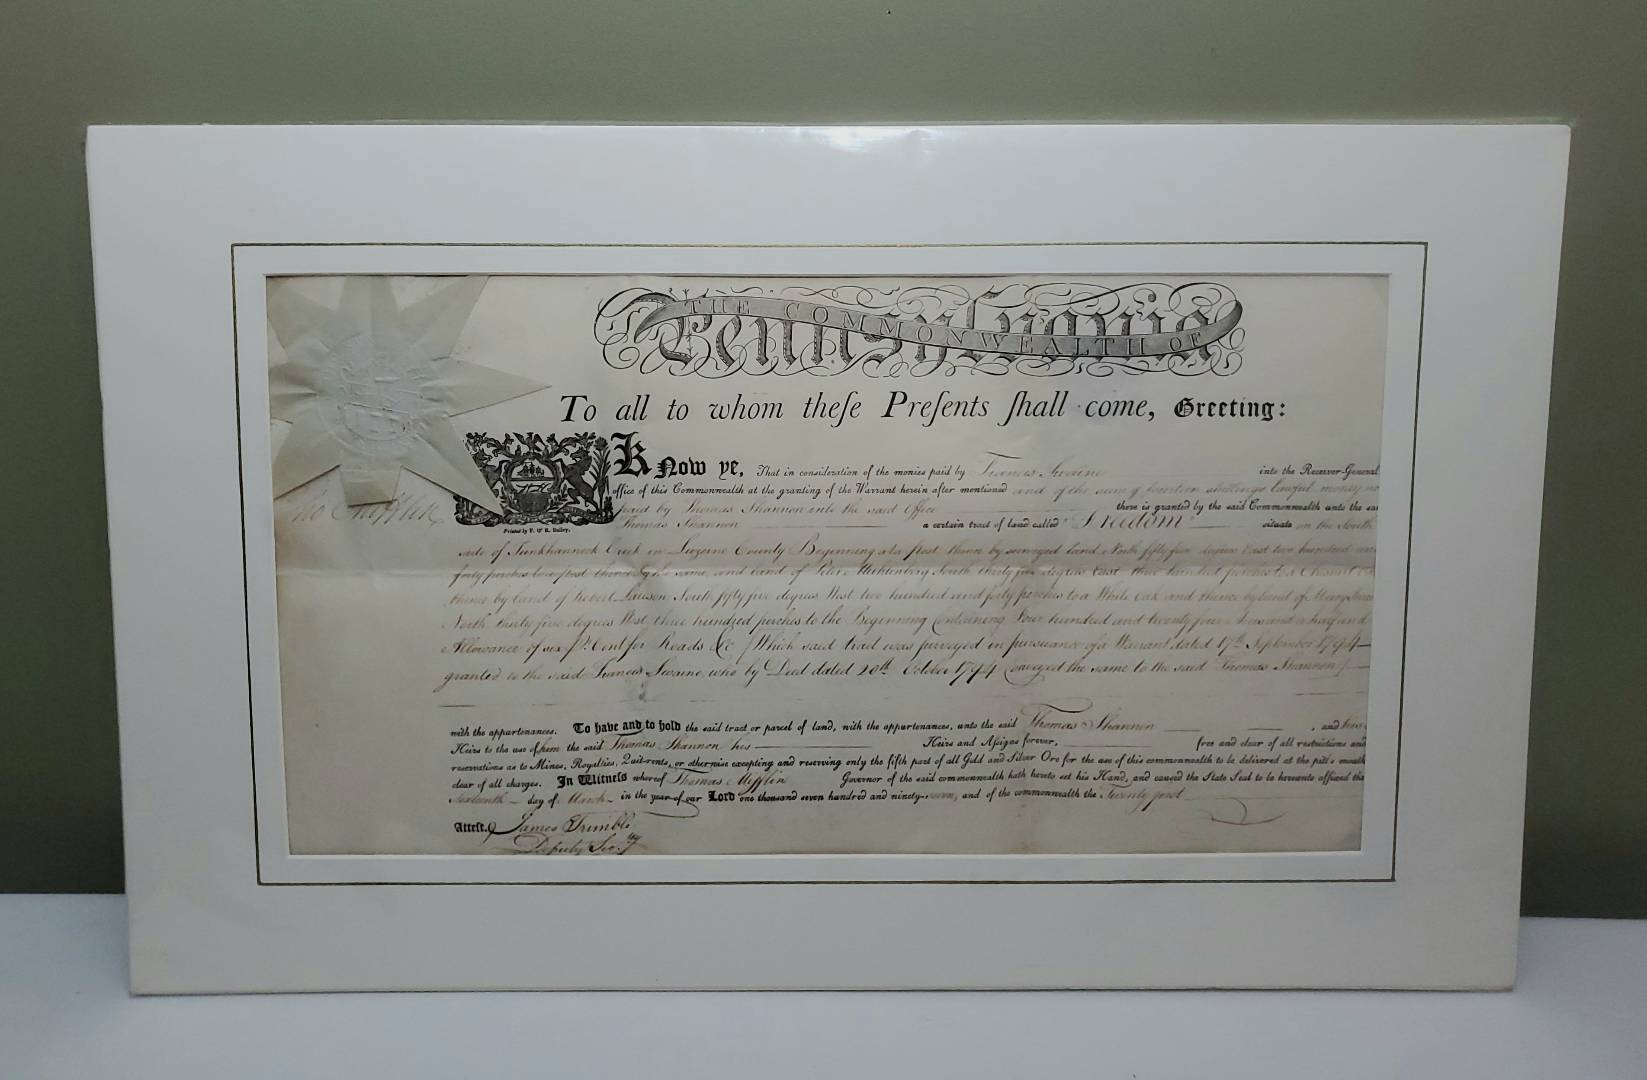 THE COMMONWEALTH OF
Pennsylvania
To all to whom theſe Preſents ſhall come, Greeting:
Know ye, That in consideration of the monies paid by Francis Swaine into the Receiver-General
office of this Commonwealth at the granting of the Warrant herein after mentioned and of the sum of fourteen shillings lawful money
paid by Thomas Shannon into the said Office there is granted by the said Commonwealth unto the
Tho Mifflin
Thomas Shannon a certain tract of land called "Freedom" situate on the South
Printed by F. & R. Bailey.
side of Tunkhannock Creek in Luzerne County Beginning at a Post thence by surveyed land North fifty five degrees East two hundred and
forty perches to a post thence by the same and land of Peter Muhlenberg South thirty five degrees East three hundred perches to a Chesnut
thence by land of Robert Lawson South fifty five degrees West two hundred and forty perches to a White Oak and thence by land of Mary
North thirty five degrees West three hundred perches to the Beginning Containing Four hundred and twenty five Acres and a half and
Allowance of six Pr. Cent for Roads &c [Which said tract was surveyed in pursuance of a Warrant dated 17th September 1794
granted to the said Francis Swaine, who by Deed dated 20th October 1794 Conveyed the same to the said Thomas Shannon]
with the appurtenances. To have and to hold the said tract or parcel of land, with the appurtenances, unto the said Thomas Shannon , and
Heirs to the use of him the said Thomas Shannon his Heirs and Aſſigns forever, free and clear of all restrictions and
reservations as to Mines, Royalties, Quit-rents, or otherwise excepting and reserving only the fifth part of all Gold and Silver Ore for the use of this commonwealth to be delivered at the pit's mouth
clear of all charges. In Witneſs whereof Thomas Mifflin Governor of the said commonwealth hath hereto set his Hand, and caused the State Seal to be hereunto affixed the
Sixteenth day of March in the year of our Lord one thousand seven hundred and ninety-seven, and of the commonwealth the Twenty first
Atteſt. James Trimble
Deputy Secry